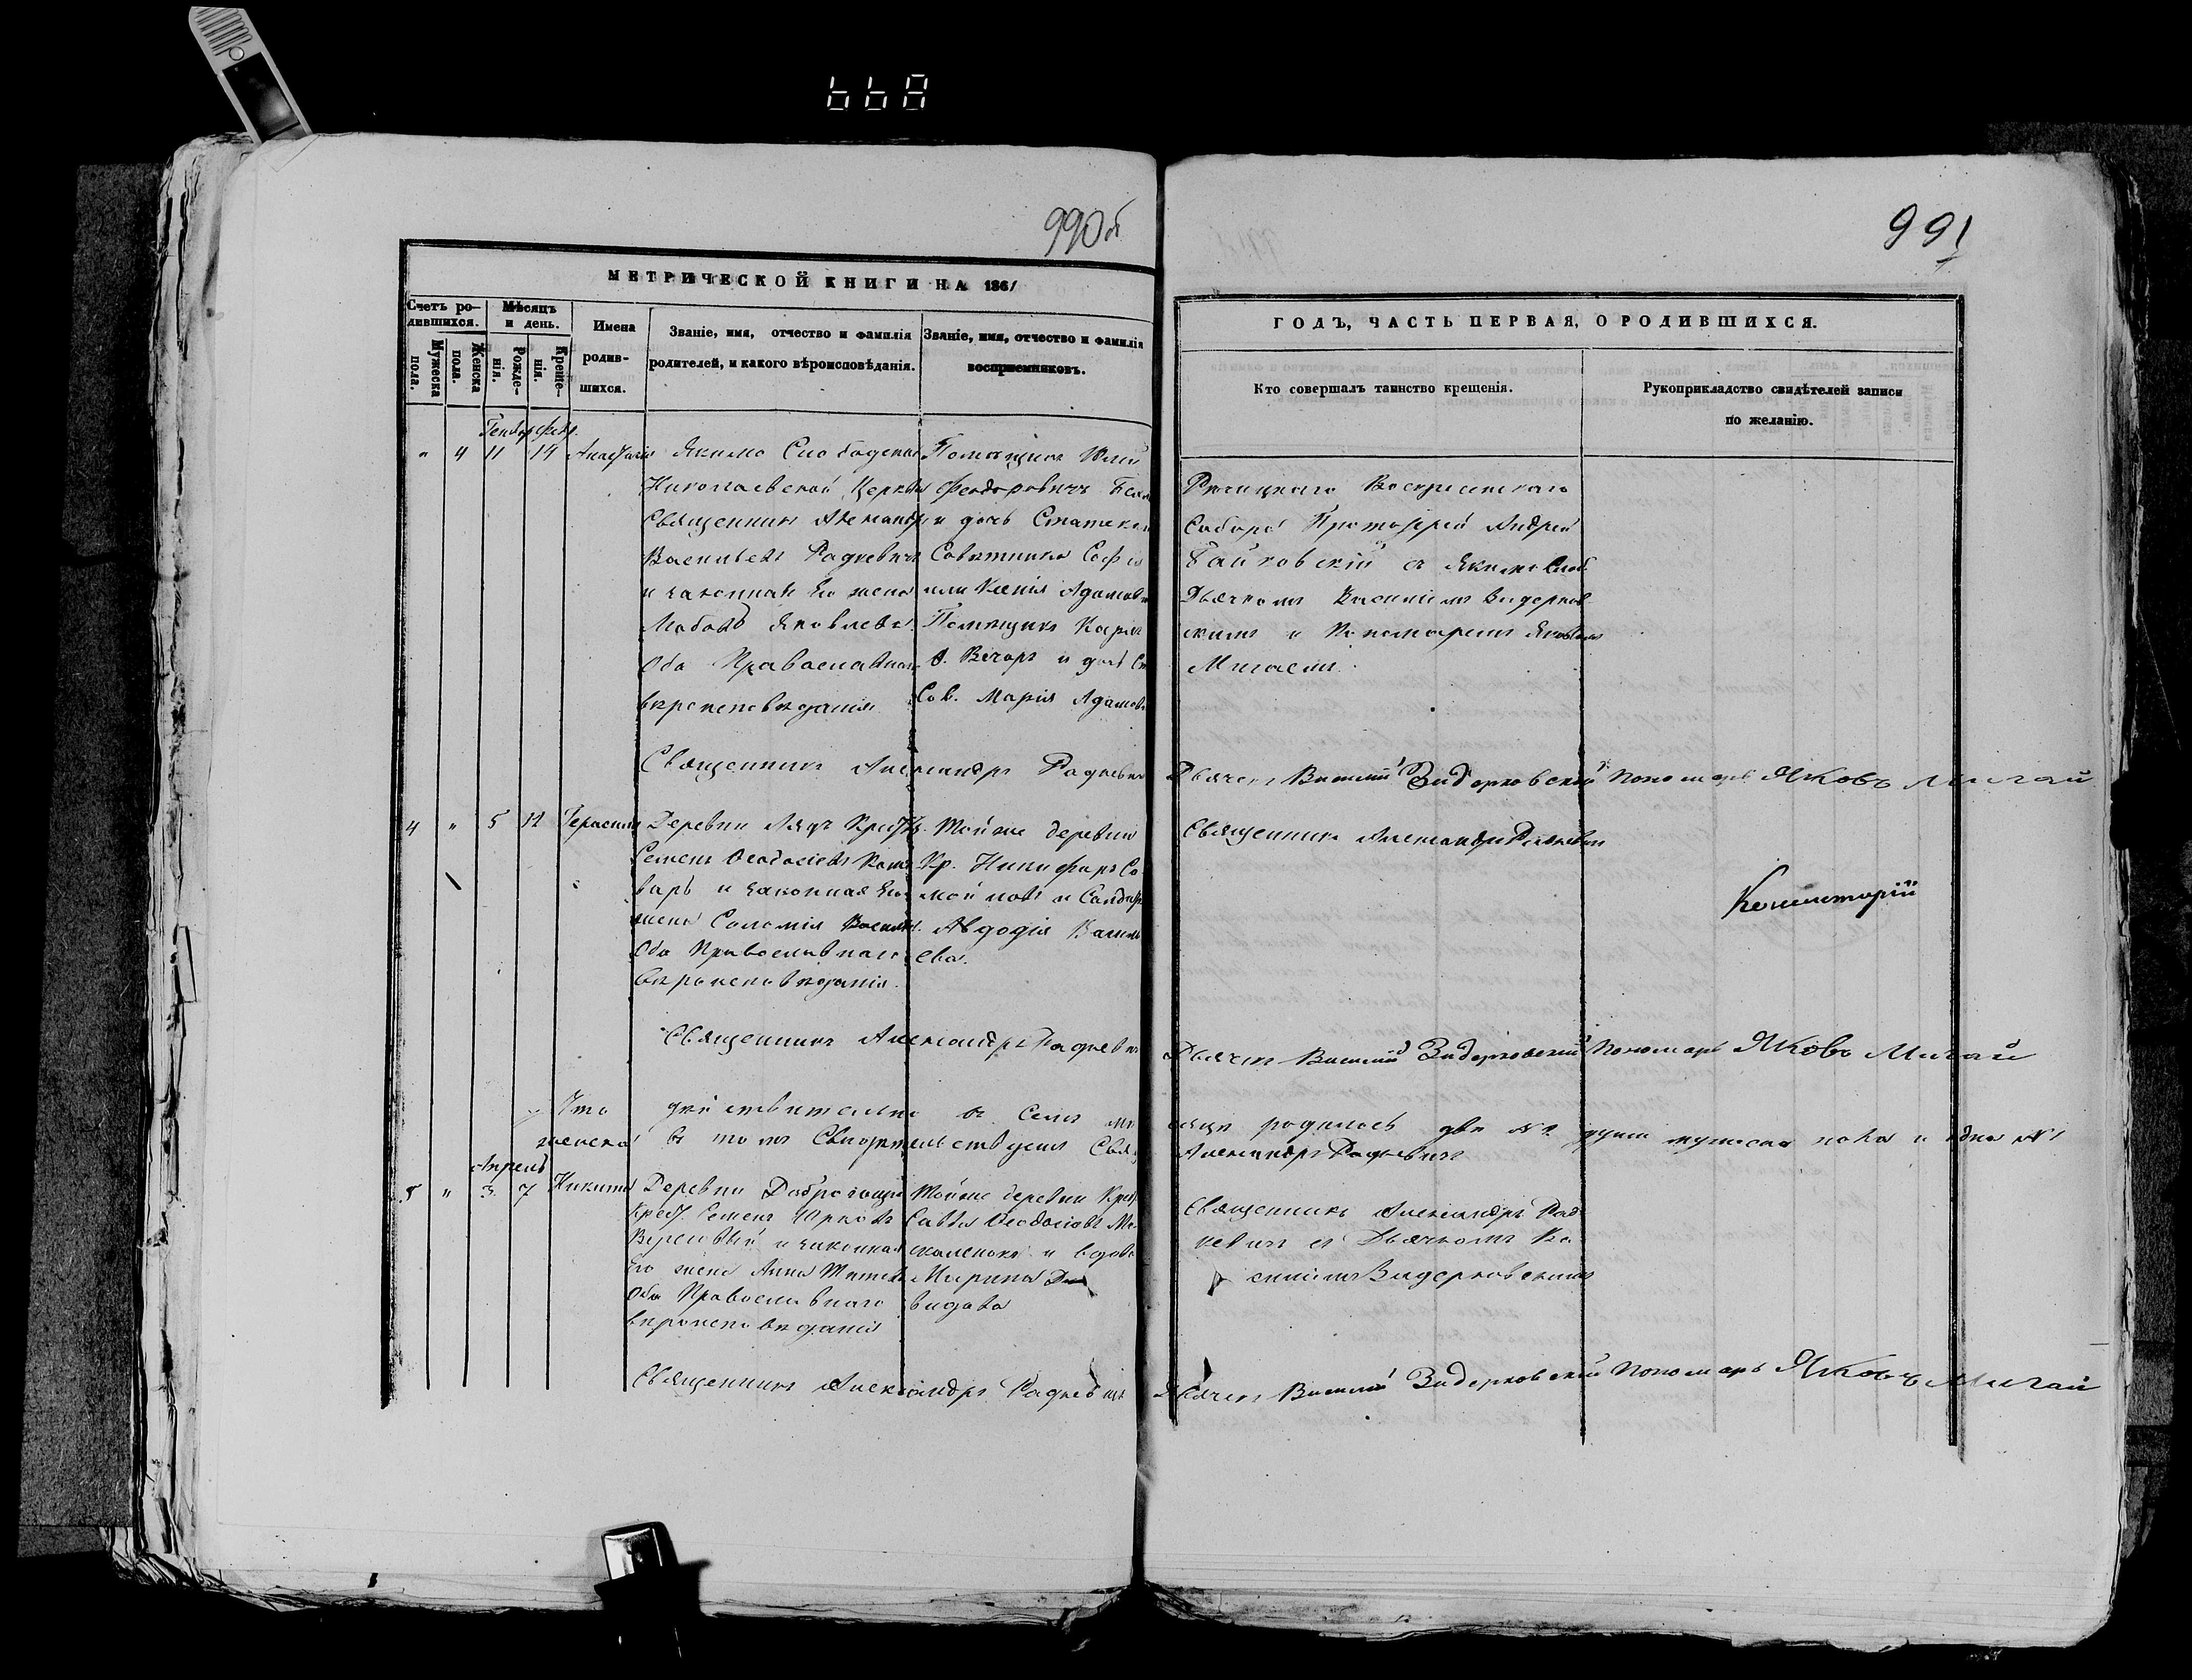 990об
991
МЕТРИЧЕСКОЙ КНИГИ НА 1861
ГОДЪ, ЧАСТЬ ПЕРВАЯ, О РОДИВШИХСЯ.
Счетъ ро-
дившихся.
Мужеска
пола.
Женска
пола.
Мѣсяцъ
и день.
Рожде-
нія.
Креще-
нія.
Имена
родив-
шихся.
Званіе, имя, отчество и фамилія
родителей, и какого вѣроисповѣданія.
Званіе, имя, отчество и фамилія
воспріемниковъ.
Кто совершалъ таинство крещенія.
Рукоприкладство свидѣтелей записи
по желанію.
" 4 11 14
Николаевской Церкви
Священникъ Александръ
Васильевъ Радкевичъ
и законная Его жена
Любовь Яковлева
Оба Православнаго
вѣроисповѣданія
Помѣщикъ
Феодоровичъ
и дочь Статскаго
Совѣтника
или Ксенія Адамов
Помѣщикъ Карлъ
и дочь Ст
Сов. Марія Адамов
Рѣчицкаго Воскресенскаго
Собора Протоіерей Андрей
Дьячкомъ Василіемъ Видерков
скимъ и Пономаремъ Яковомъ
Мигаемъ.
Священникъ Александръ Радкевичъ
Дьячекъ Василій Видерковскій Пономарь Яковъ Мигай
4 " 5 12 Герасимъ
Деревни Лядъ Крест.
Семенъ Ѳеодосіевъ Кот
варь и законная Его
жена Соломія Васил.
Оба Православнаго
вѣроисповѣданія.
Тойже деревни
Кр. Никифоръ Са
мойловъ и
Авдодія Василь
ева.
Священникъ Александръ Радкевичъ
Консисторіи
Священникъ Александръ Радкевичъ
Дьячекъ Василій Видерковскій Пономарь Яковъ Мигай
Что дѣйствительно въ семъ мѣ
сяцѣ родилось двѣ №2 души мужеска пола и одна №1
женска въ томъ свидѣтельствуемъ Свящ
Александръ Радкевичъ
Апрель
5 " 3 7 Никита
Деревни
Крест. Семенъ Юрковъ
и законная
Его жена Анна Титов
Оба Православнаго
вѣроисповѣданія
Тойже деревни Крест.
Савва Ѳеодосіовъ Мо
скаленокъ и вдова
Марина Да
видова
Священникъ Александръ Рад
кевичъ съ Дьячкомъ Ва
силіемъ Видерковскимъ
Священникъ Александръ Радкевичъ
Дьячекъ Василій Видерковскій Пономарь Яковъ Мигай